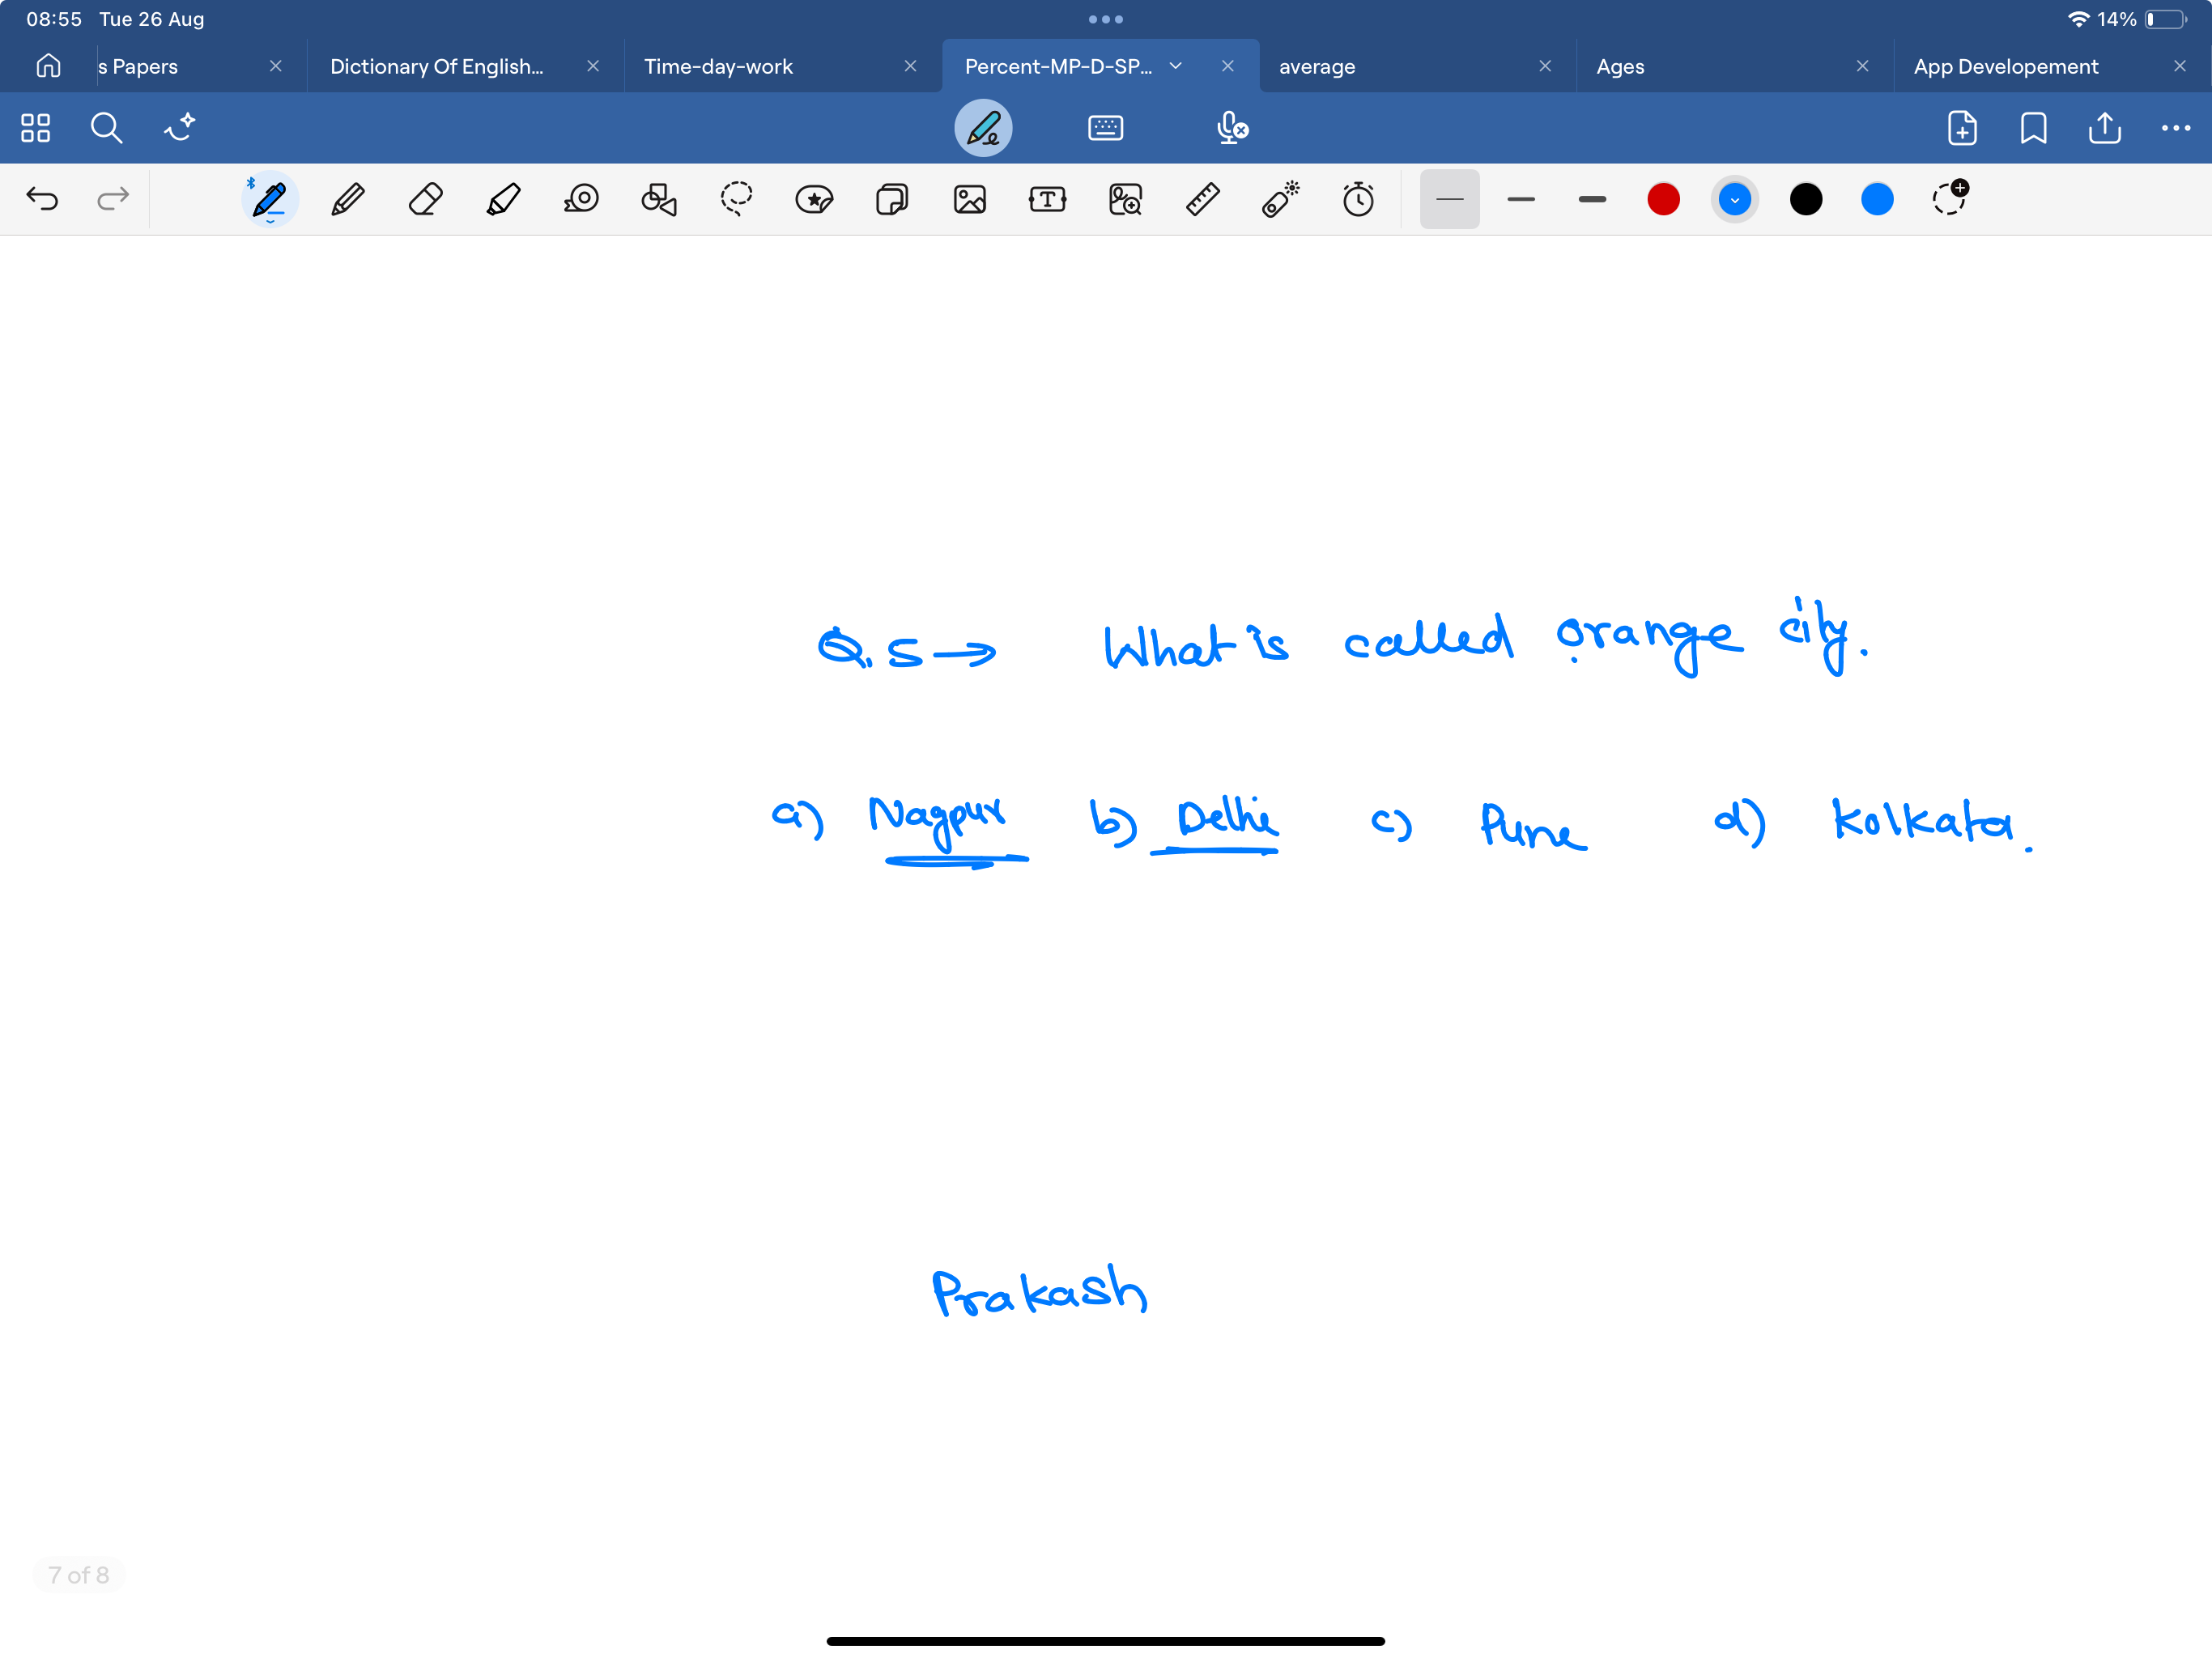 08:55 Tue 26 Aug 14%
s Papers Dictionary Of English... Time-day-work Percent-MP-D-SP... average Ages App Developement
Q.5→ What is called orange city.
a) Nagpur b) Delhi c) Pune d) Kolkata.
Prakash
7 of 8